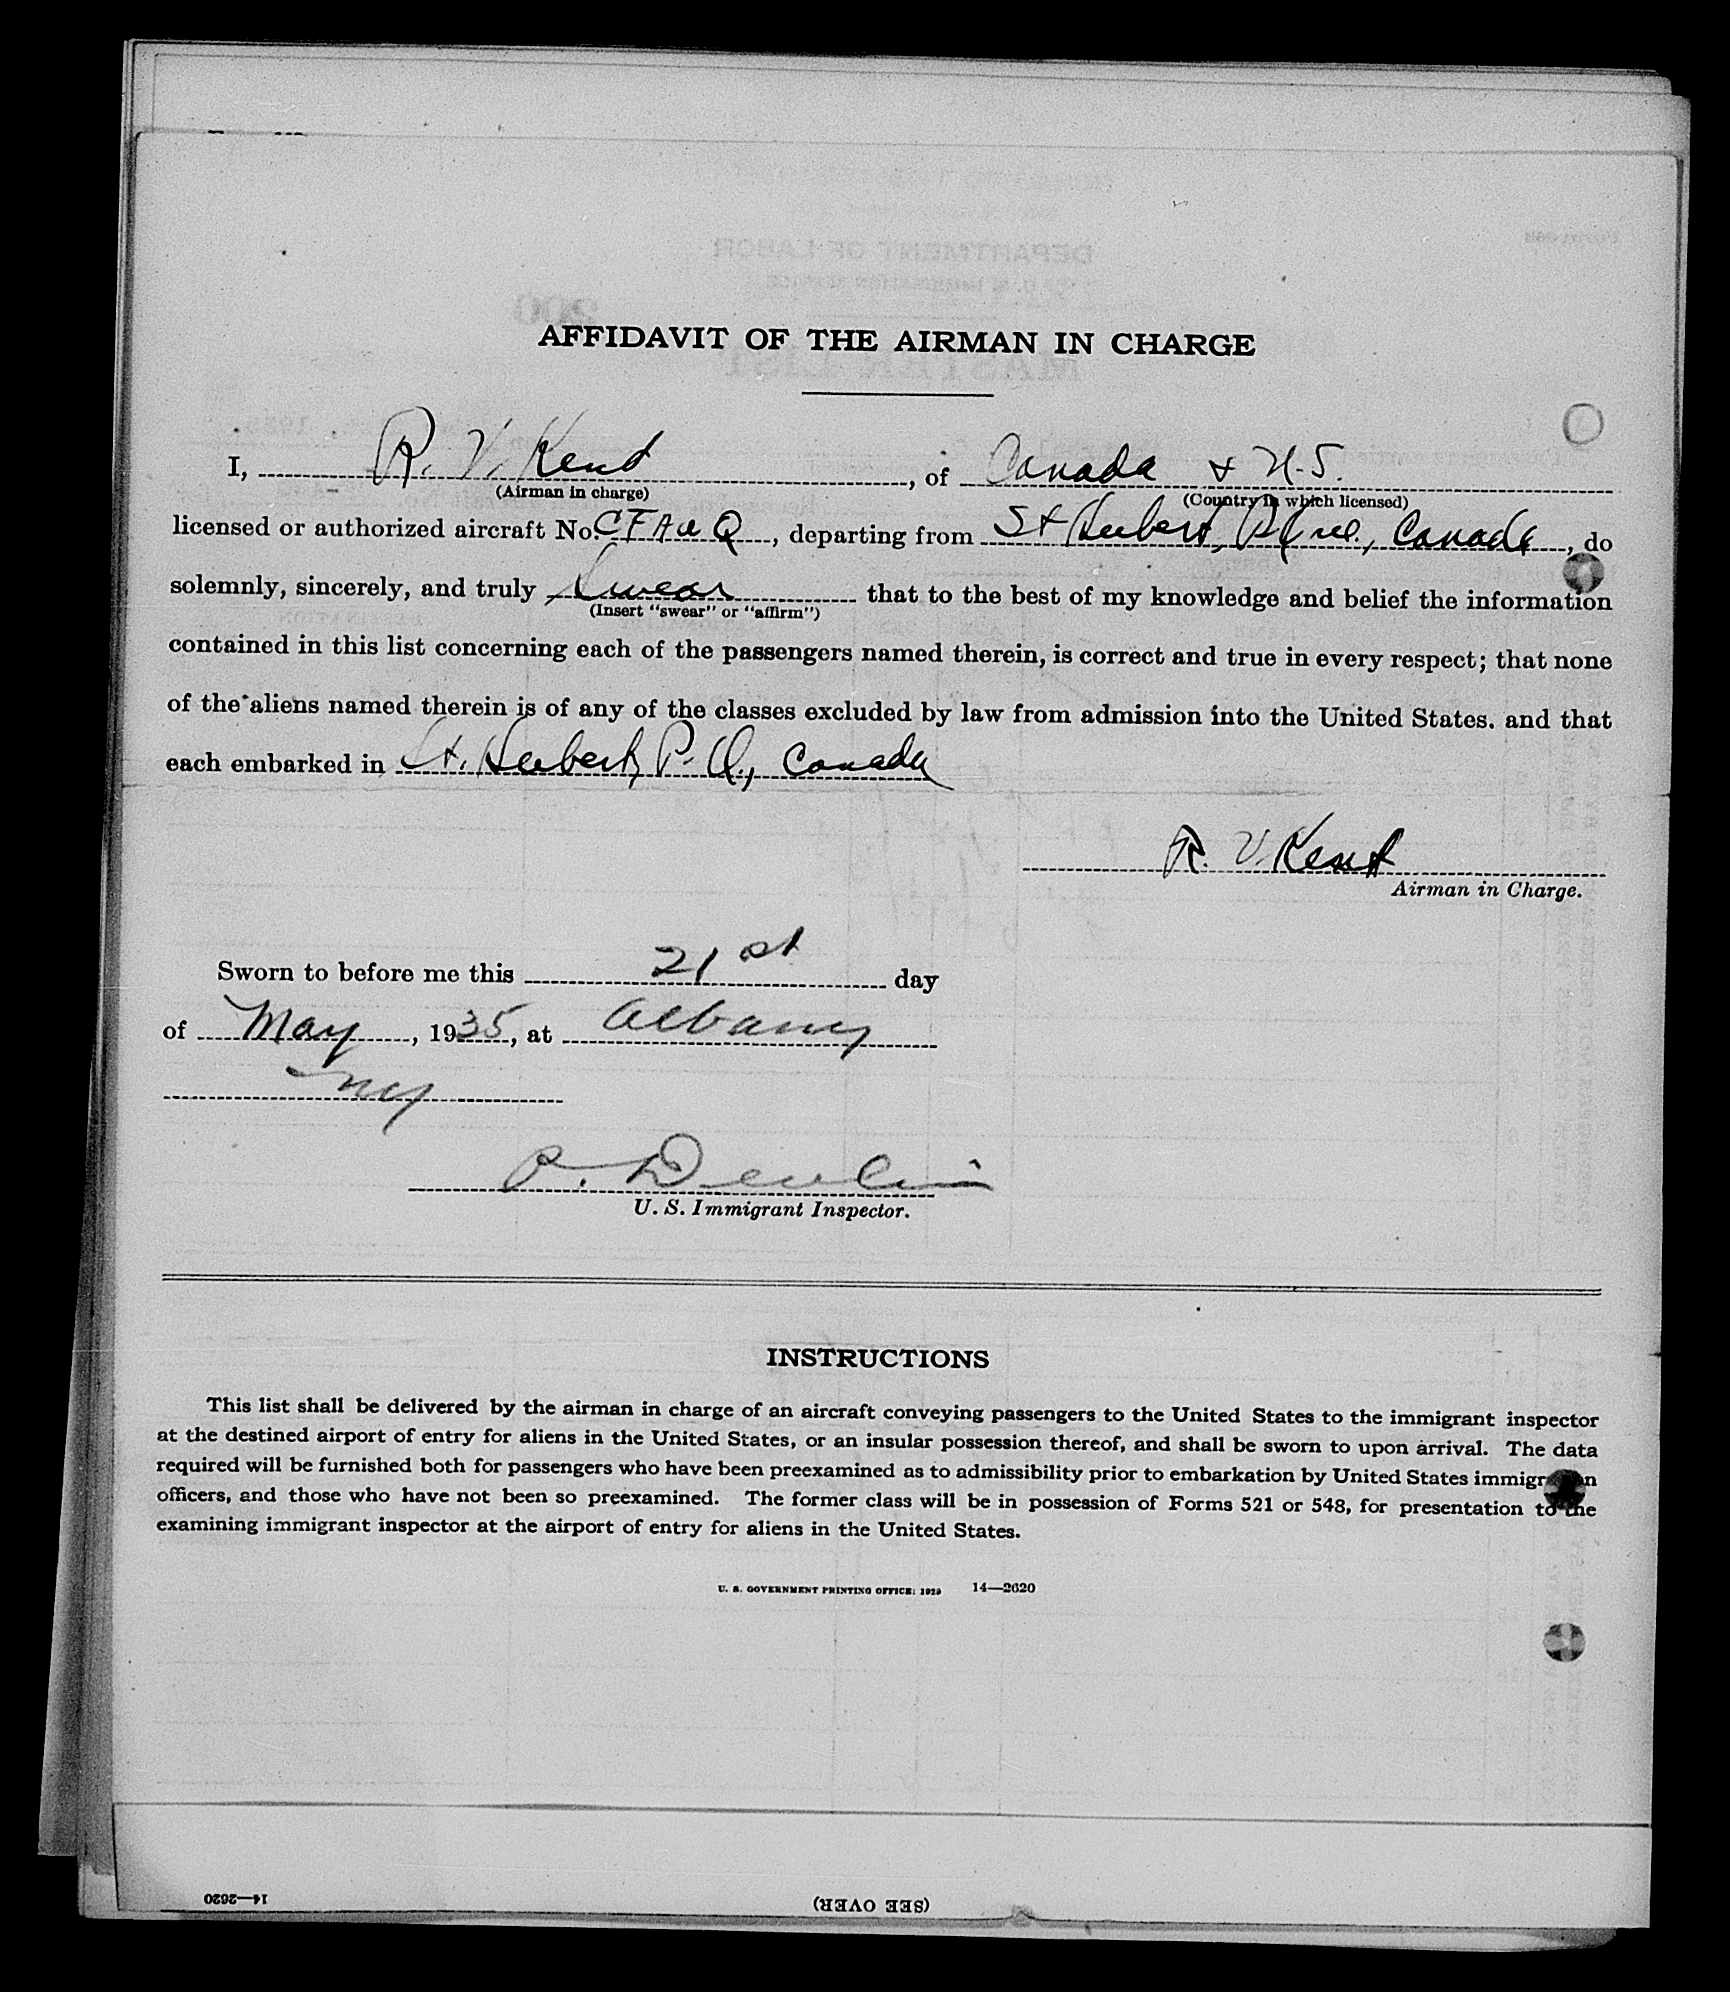 AFFIDAVIT OF THE AIRMAN IN CHARGE
I, R. V. Kent, of Canada & U.S.
(Airman in charge) (Country in which licensed)
licensed or authorized aircraft No. CFAUQ, departing from St Hubert, Canada, do
solemnly, sincerely, and truly swear that to the best of my knowledge and belief the information
(Insert "swear" or "affirm")
contained in this list concerning each of the passengers named therein, is correct and true in every respect; that none
of the aliens named therein is of any of the classes excluded by law from admission into the United States. and that
each embarked in St. Hubert, P. Q., Canada
R. V. Kent
Airman in Charge.
Sworn to before me this 21st day
of May, 1935, at Albany
NY
P. Devlin
U. S. Immigrant Inspector.
INSTRUCTIONS
This list shall be delivered by the airman in charge of an aircraft conveying passengers to the United States to the immigrant inspector
at the destined airport of entry for aliens in the United States, or an insular possession thereof, and shall be sworn to upon arrival. The data
required will be furnished both for passengers who have been preexamined as to admissibility prior to embarkation by United States immigration
officers, and those who have not been so preexamined. The former class will be in possession of Forms 521 or 548, for presentation to the
examining immigrant inspector at the airport of entry for aliens in the United States.
U. S. GOVERNMENT PRINTING OFFICE: 1929 14—2620
(SEE OVER)
14—2620